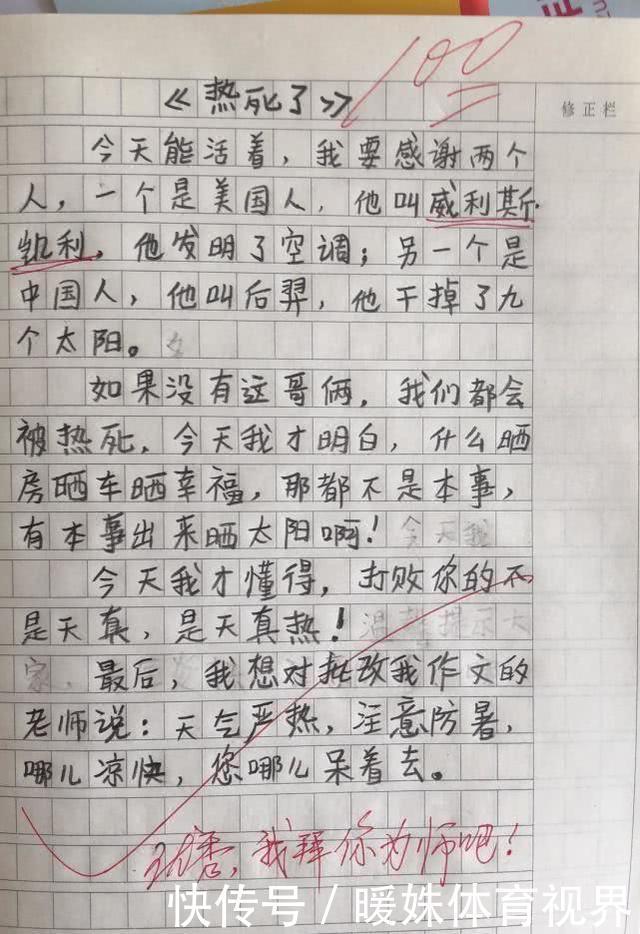 100
修正栏
《热死了》
今天能活着，我要感谢两个
人，一个是美国人，他叫威利斯
凯利，他发明了空调；另一个是
中国人，他叫后羿，他干掉了九
个太阳。
如果没有这哥俩，我们都会
被热死，今天我才明白，什么晒
房晒车晒幸福，那都不是本事，
有本事出来晒太阳啊！今天我
今天我才懂得，打败你的不
是天真，是天真热！温馨提示大
家，最后，我想对批改我作文的
老师说：天气严热，注意防暑，
哪儿凉快，您哪儿呆着去。
优秀，我拜你为师吧！
快传号／暖姝体育视界